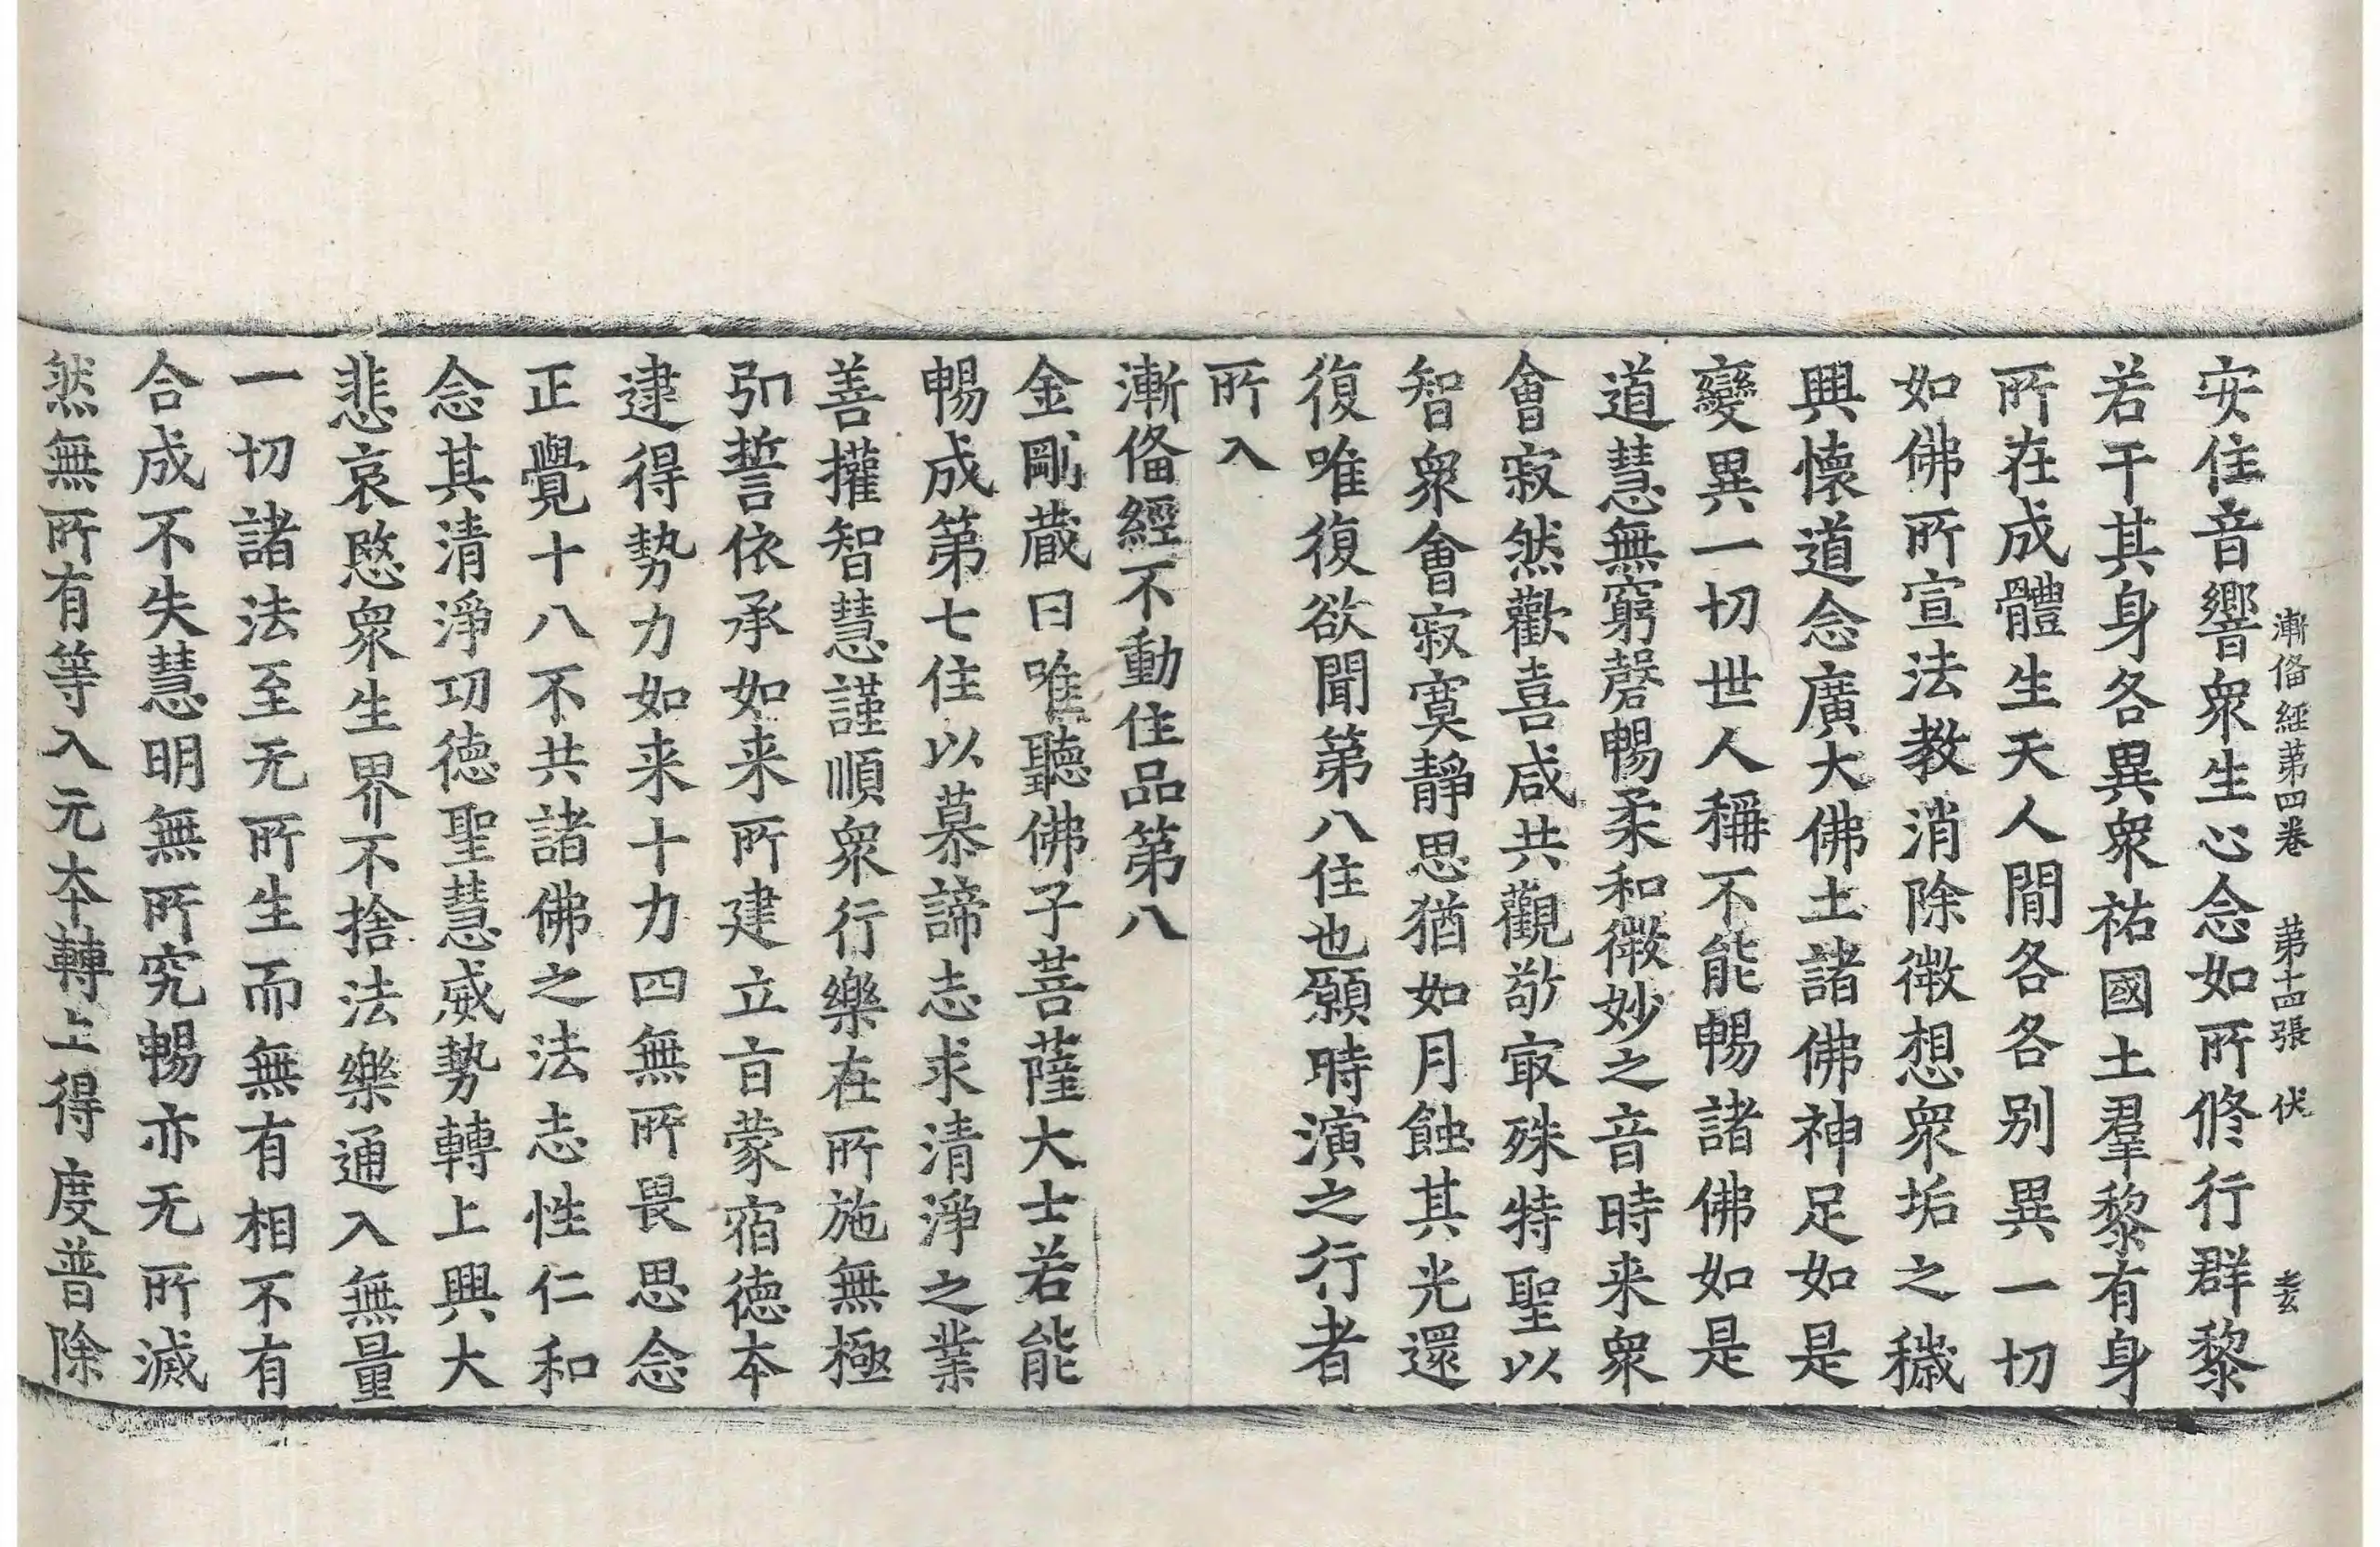 漸俻經第四卷　第十四張　伏
安住音響衆生心念如所脩行群黎
若干其身各異衆祐國土羣黎有身
所在成體生天人間各各別異一切
如佛所宣法教消除微想衆垢之穢
興懷道念廣大佛土諸佛神足如是
變異一切世人稱不能暢諸佛如是
道慧無窮磬暢柔和微妙之音時来衆
會寂然歡喜咸共觀敬㝡殊特聖以
智衆會寂寞靜思猶如月蝕其光還
復唯復欲聞第八住也願時演之行者
所入
漸俻經不動住品第八
金剛蔵曰唯聽佛子菩薩大士若能
暢成第七住以慕諦志求清淨之業
善權智慧謹順衆行樂在所施無極
引誓依承如来所建立㐭蒙宿德夲
逮得勢力如来十力四無所畏思念
正覺十八不共諸佛之法志性仁和
念其清淨功德聖慧威勢轉上興大
悲哀愍衆生界不捨法樂通入無量
一切諸法至无所生而無有相不有
合成不失慧明無所究暢亦无所滅
然無所有等入元夲轉上得度普除